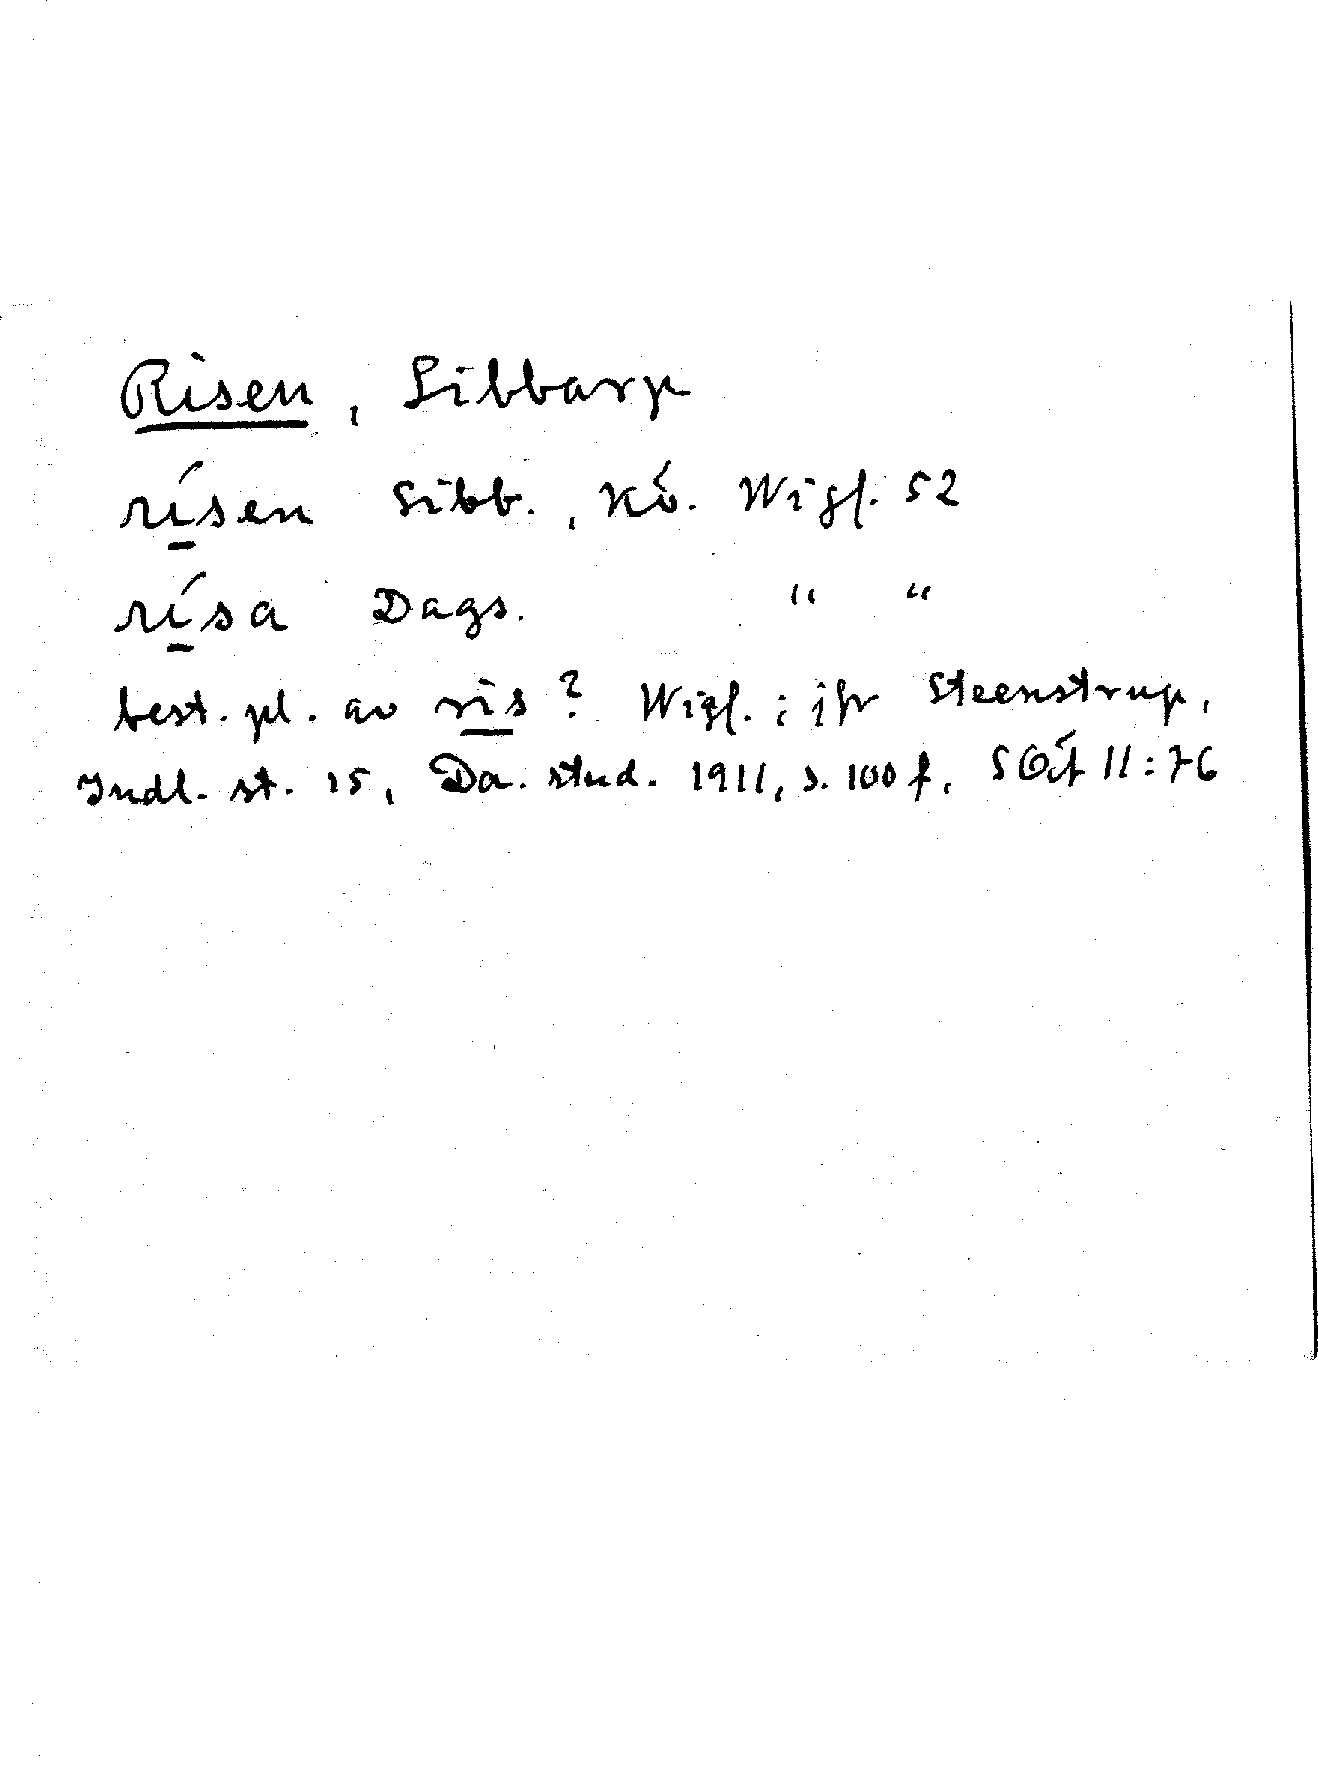 Risen, Sibbarp
rísen Sibb., Kö. Wigf. 52
rísa Dags. " "
best. pl. av ris? Wigf.; jfr Steenstrup,
Indl. st. 15, Da. stud. 1911, s. 100 f, SOÄ 11:76